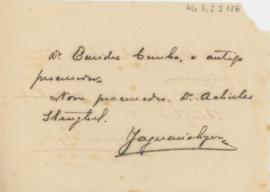 AG 3.2.2.186
Dr. Eurides Cunha, o antigo
procurador.
Novo procurador Dr. Achilles
Stenghel.